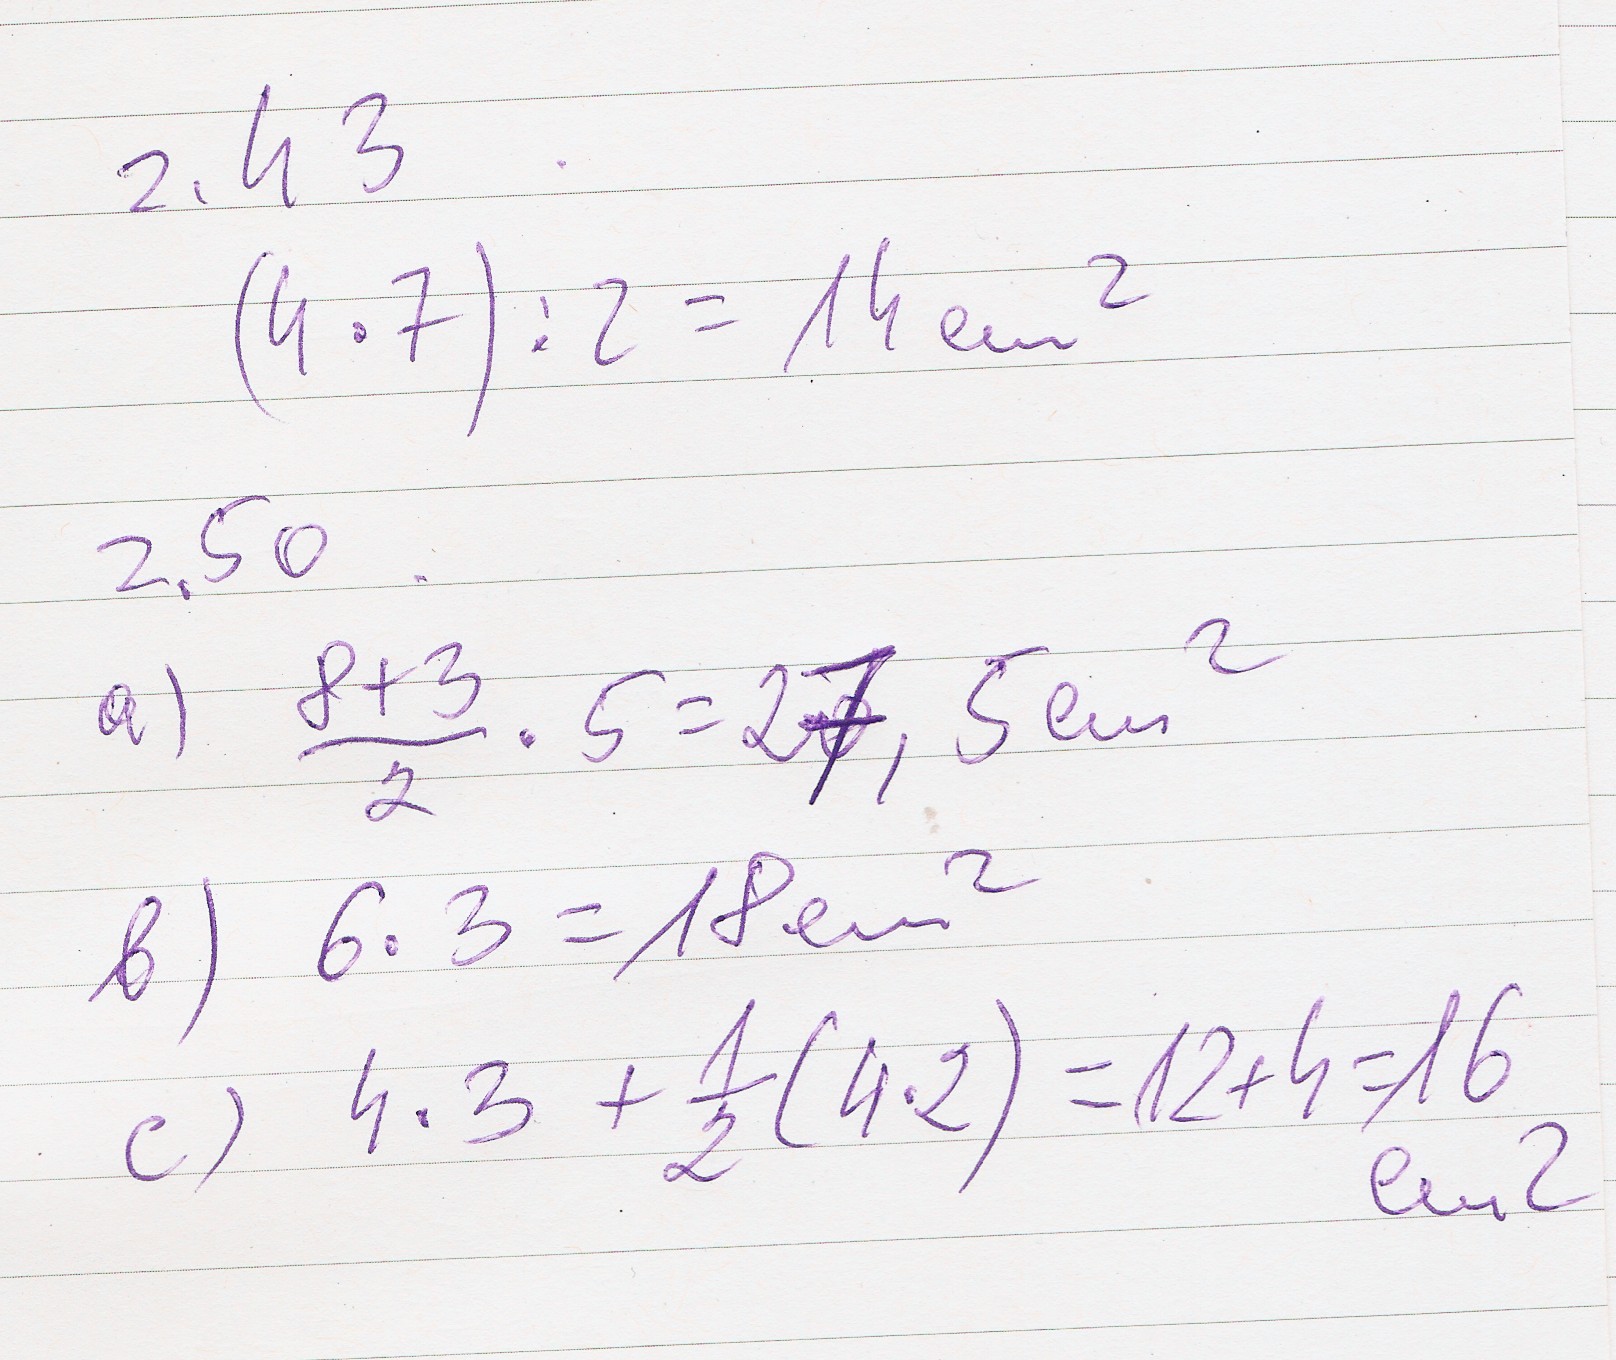 2.43
(4·7):2=14cm²
2.50
a) (8+3)/2 · 5 = 27,5cm²
b) 6·3=18cm²
c) 4·3 + 1/2 (4·2) = 12+4=16
cm²